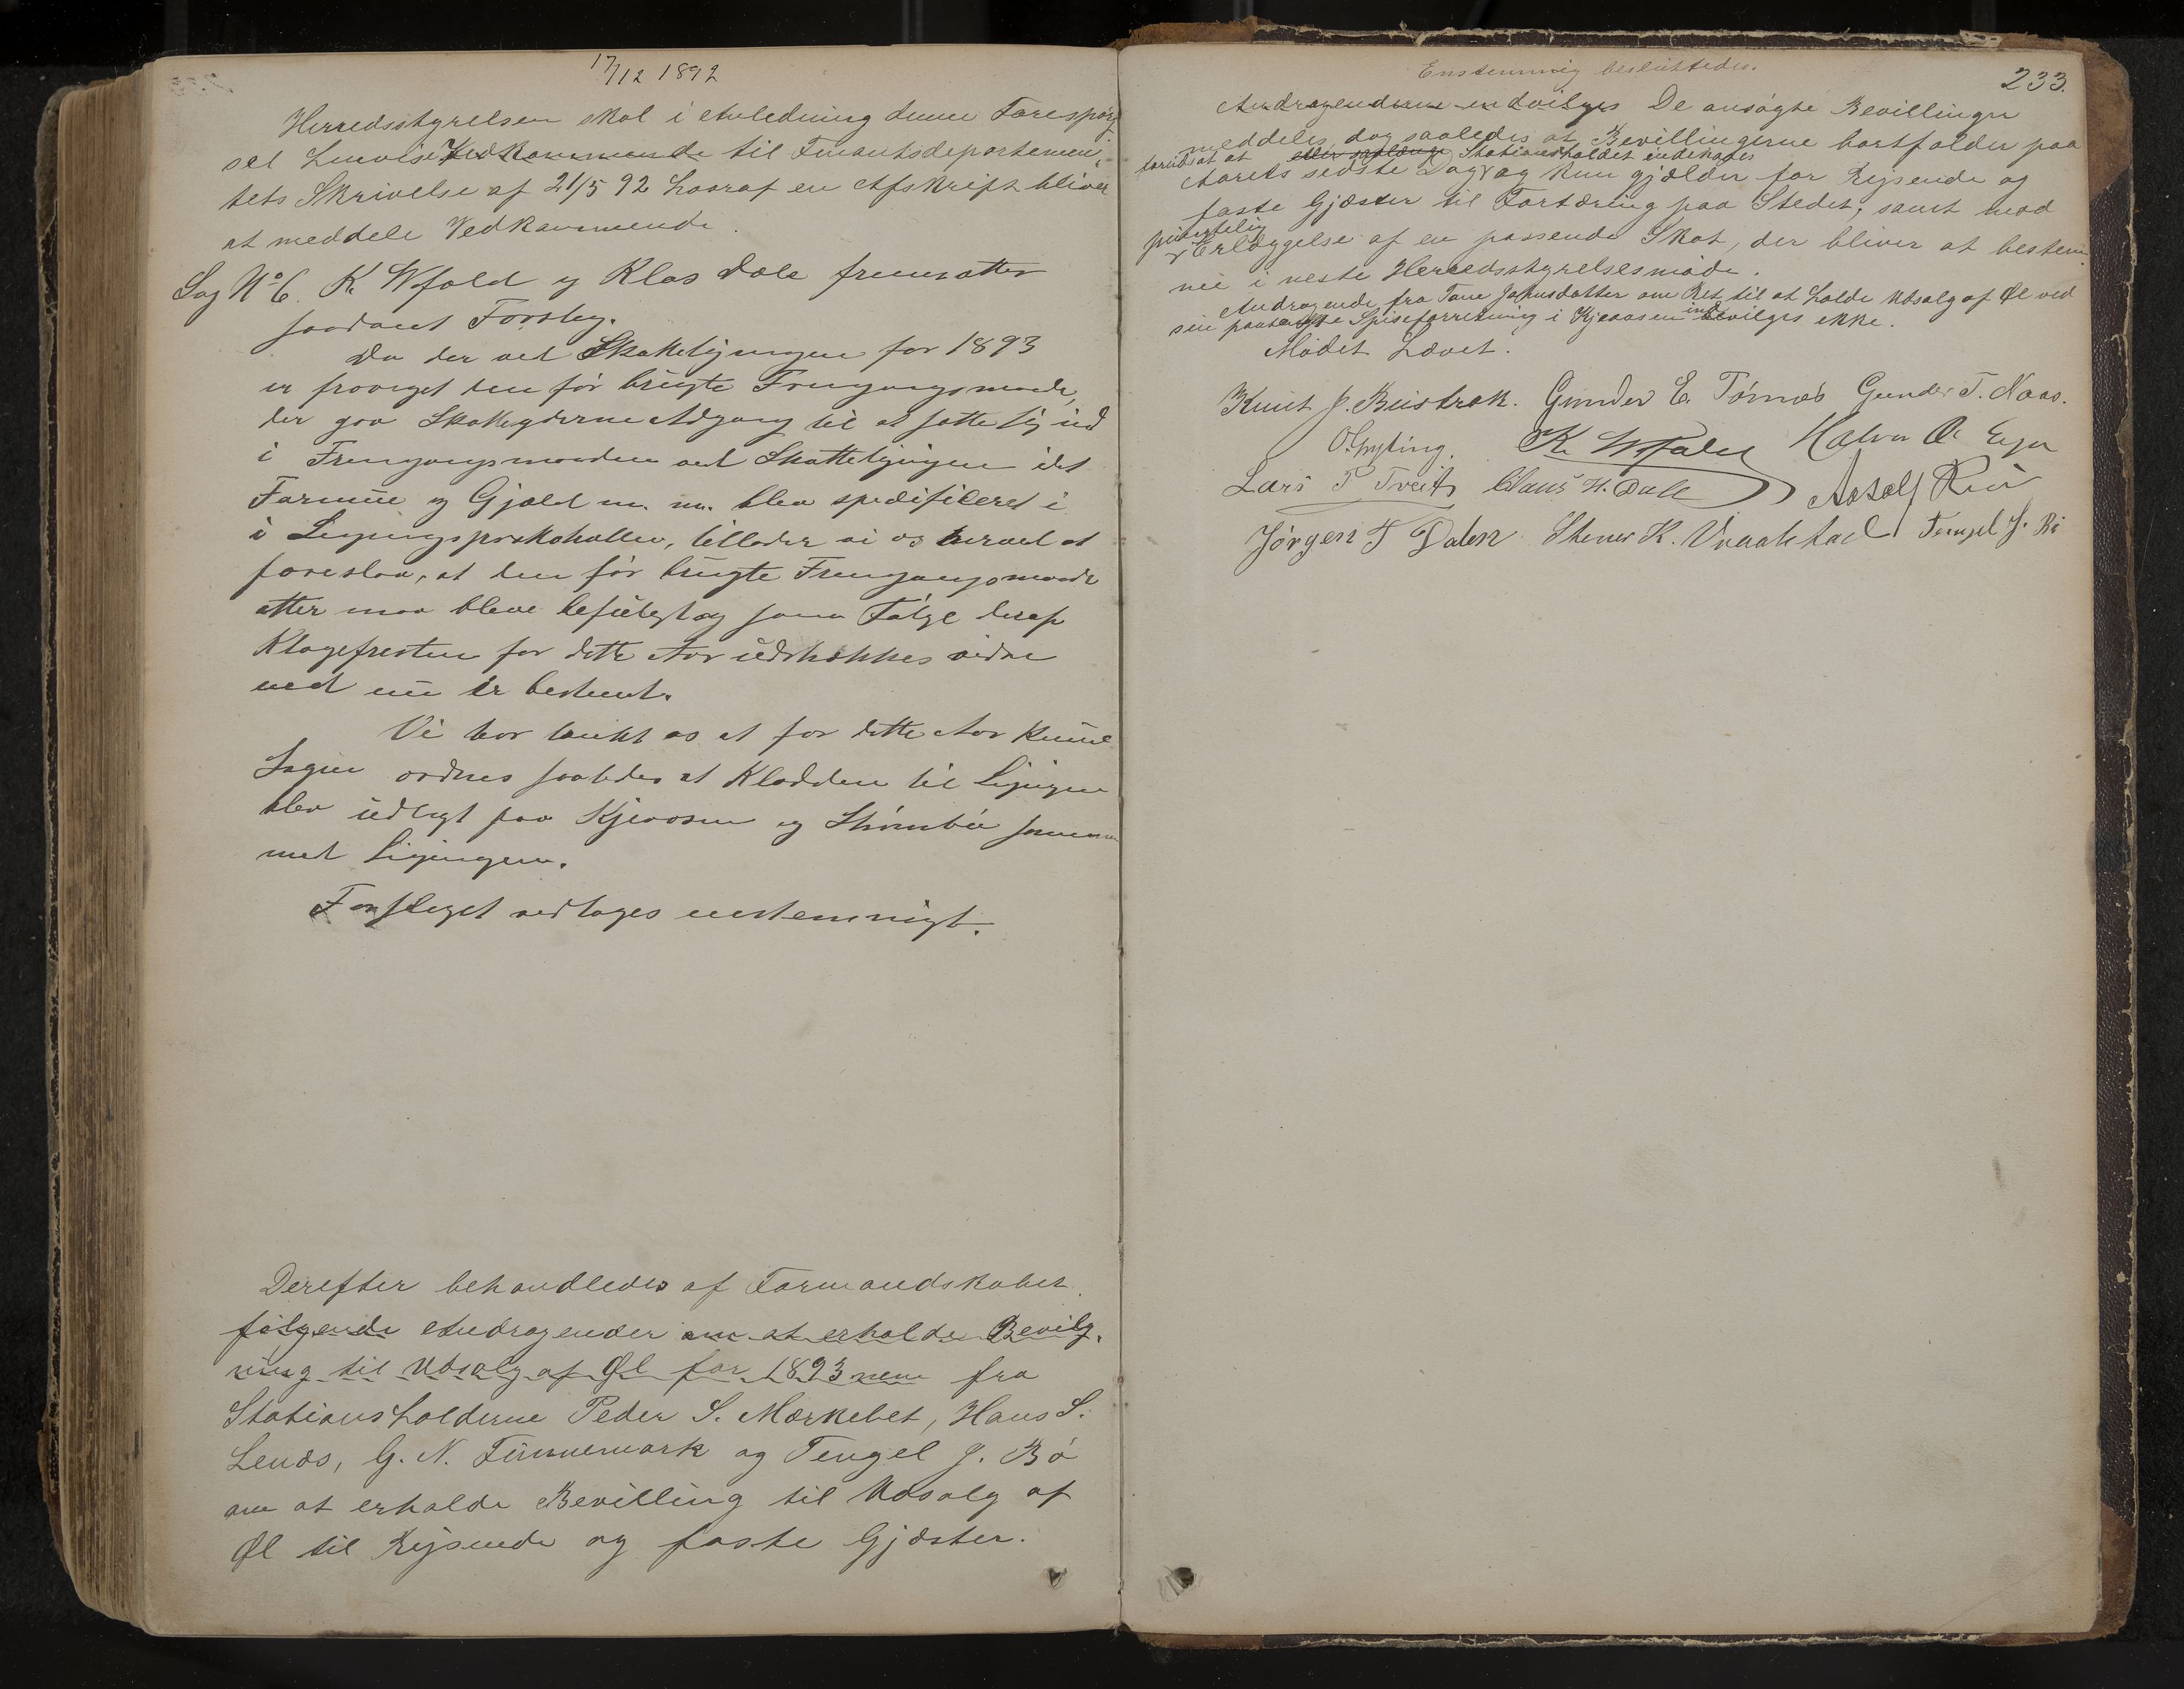 17/12 1892
Herredsstyrelsen skal i Anledning denne Forespørg
sel henvise Vedkommende til Finantsdepartemen-
tets Skrivelse af 21/5 92 hvoraf en Afskrift bliver
at meddele Vedkommende.
Sag No 6. K. Wfald og Klas Dale fremsatter
saadant Forslag.
Da der ved Skatteligningen for 1893
er fraveget den før brugte Fremgangsmaade,
der gav Skatteyderne Adgang til at sætte sig ind
i Fremgangsmaaden ved Skatteligningen idet
Formue og Gjæld m. m. blev spesificeret i
i Ligningsprotokollen, tillader vi os herved at
foreslaa, at den før brugte Fremgangsmaade
atter maa blive befulgt og som Følge deraf
Klagefristen for dette Aar udstrækkes videre
end nu er bestemt.
Vi har tænkt os at for dette Aar kunde
Sagen ordnes saaledes at Kladden til Ligningen
blev udlagt paa Kjeaasen og Strømbu sammen
med Ligningen.
Forslaget vedtages enstemmigt.
Derefter behandledes af Formandskabet
følgende Andragender om at erholde Bevilg-
ning til Udsalg af Øl for 1893 fra
Stationsholderne Peder S. Mørkebet, Hans S.
Lends, G. N. Finnemark og Tengel J. Bø
om at erholde Bevilling til Udsalg af
Øl til Rejsende og faste Gjæster.
233.
Enstemmig besluttedes.
Andragenderne indvilges De ansøgte Bevillinger
meddeles dog saaledes at Bevillingerne bortfalder paa
forudsat at Stationsholdet
Aarets sidste Dag og kun gjælder for Rejsende og
faste Gjæster til Fortæring paa Stedet, samt mod
Erlæggelse af en passende Skat, der bliver at bestem-
me i neste Herredsstyrelsesmøde.
Andragende fra Tone Johnsdatter om Ret til at holde Udsalg af Øl ved
sin Spiseforretning i Kjeaasen indvilges ikke.
Mødet hævet.
Knut J. Buistrak. Gunder E. Tørnes Gunder T. Naas.
O. Gryting. K. Wfald Halvor O. Eger
Lars T Tveit Claus H. Dale
Jørgen T Dalen Stener K. Vraalstad Tengel J. Bø